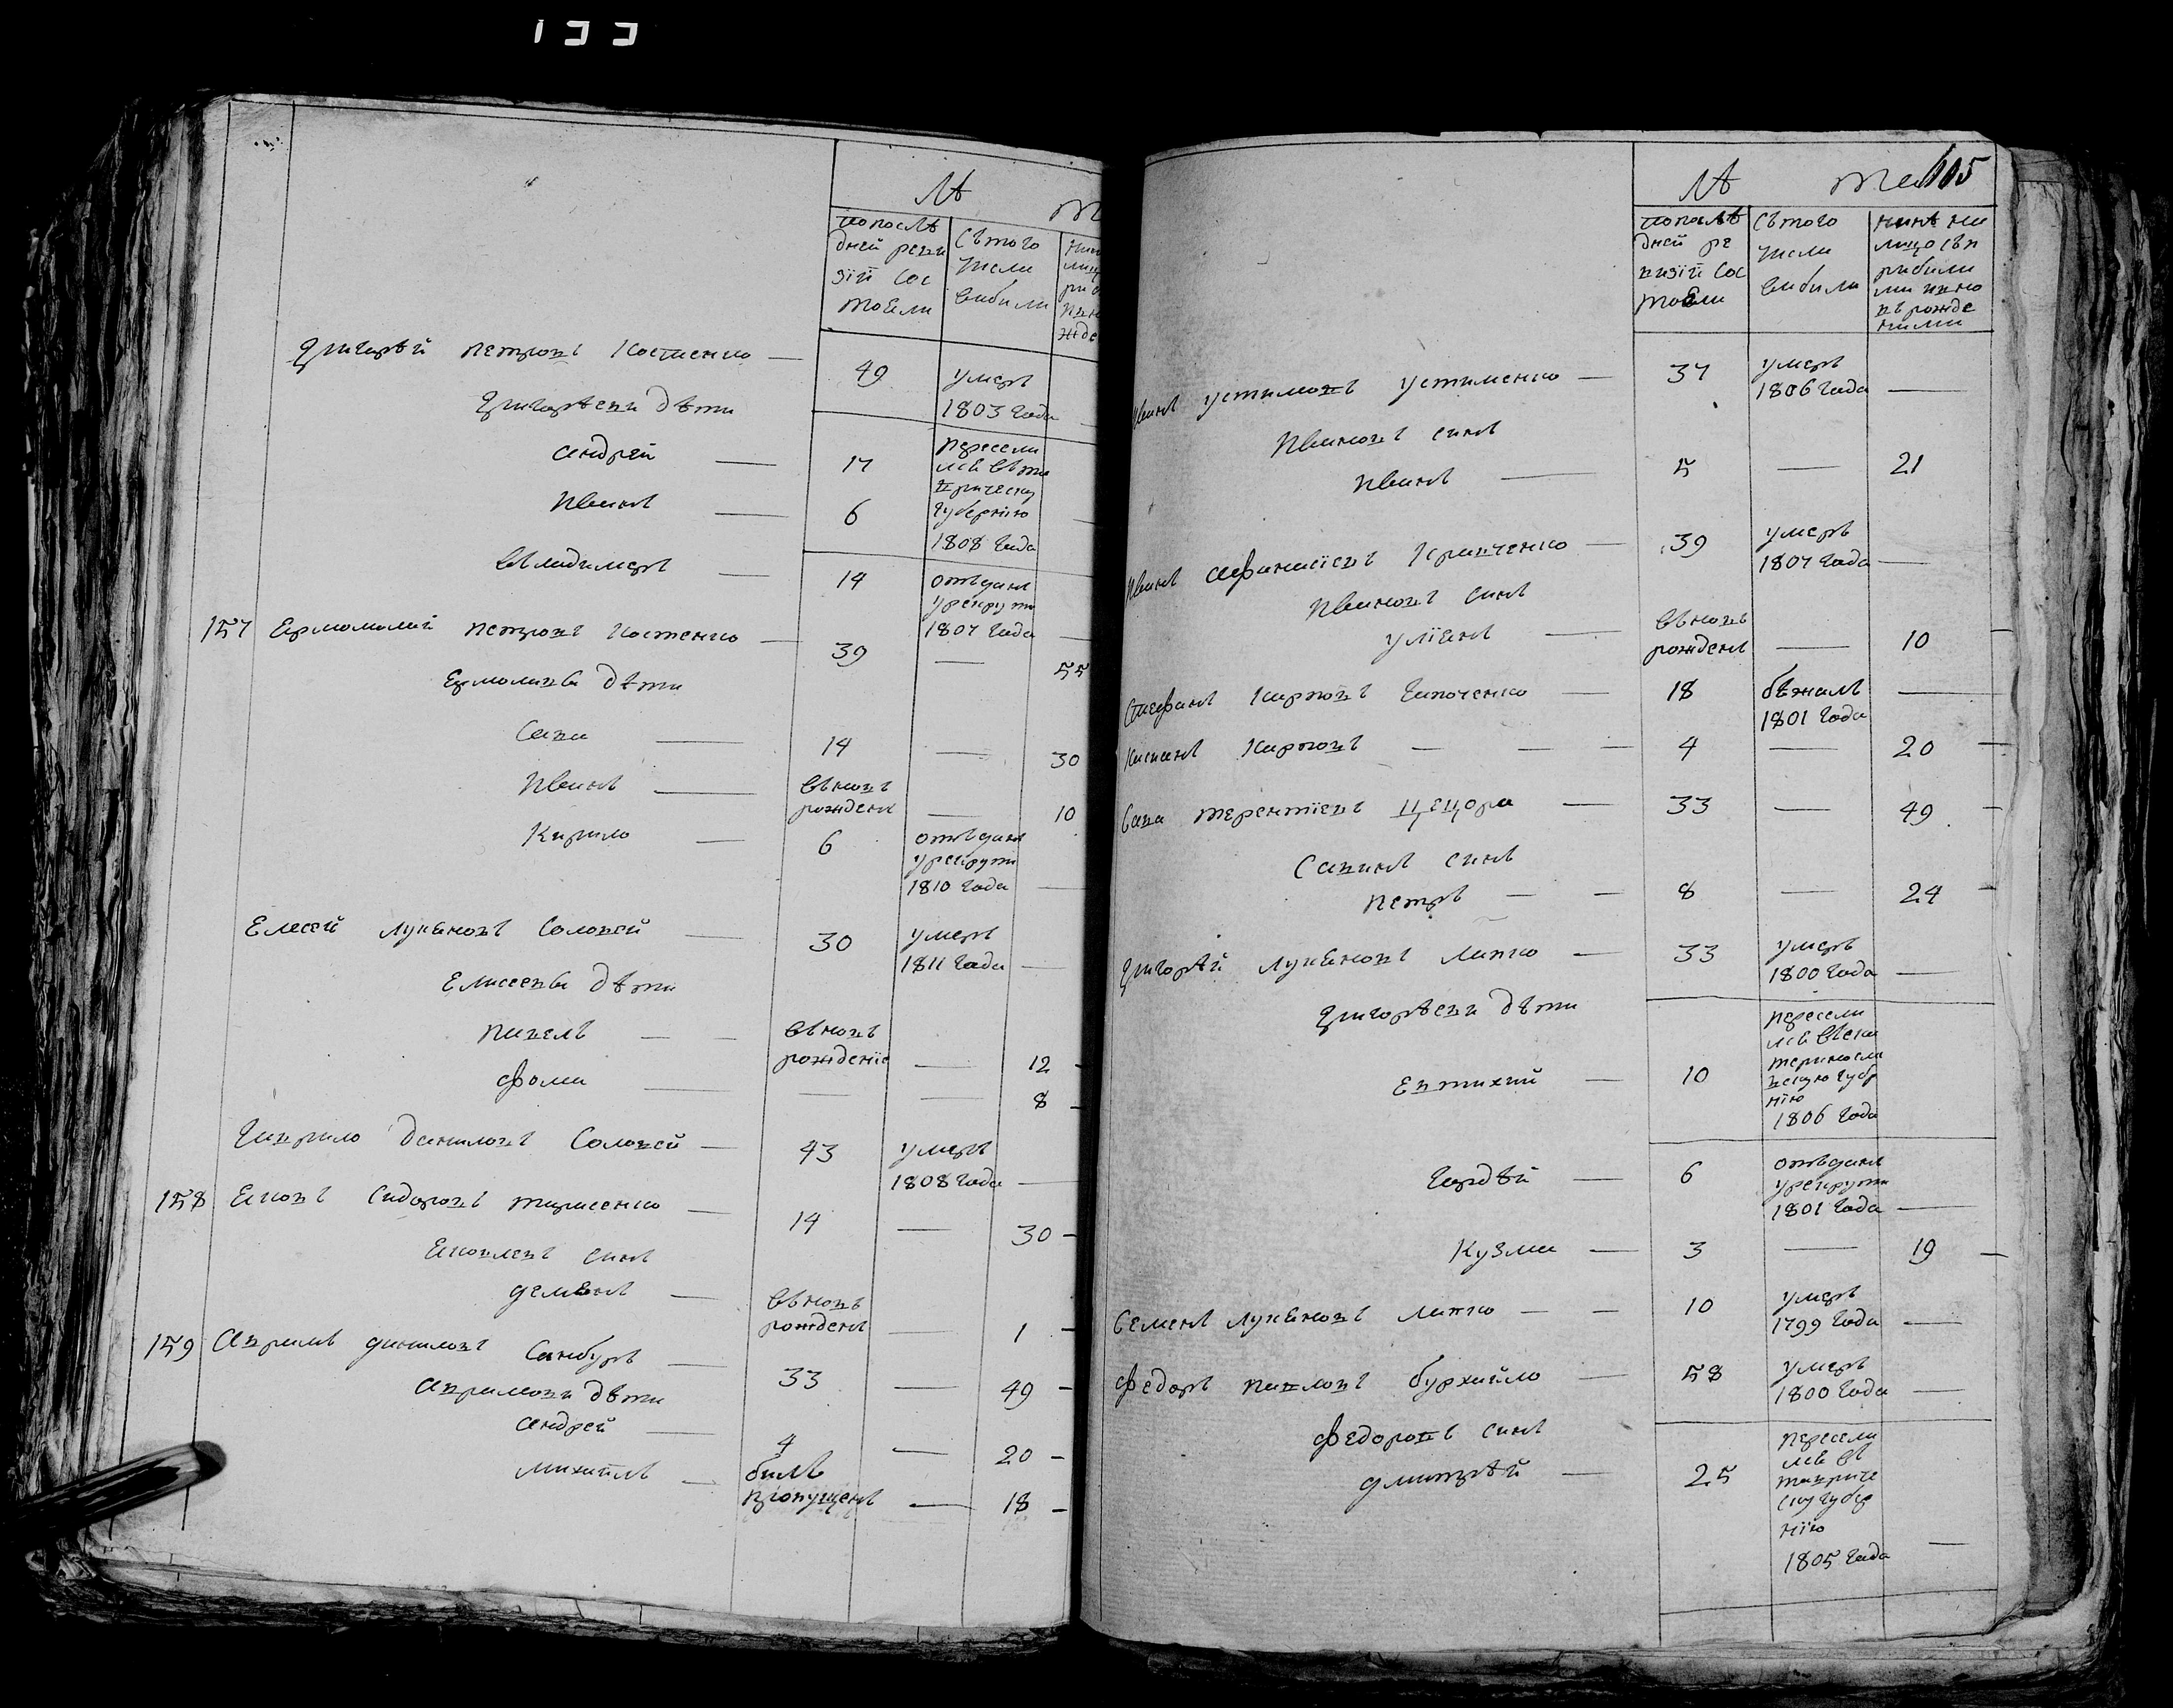 133
Лѣ т
попослѣ
дней реви
зіи сос
тояли
Съ того
числа
выбыли
Григорѣй Петровъ Костенко — 49 умеръ
1803 года
Григорѣевы дѣти
Андрей — 17 пересели
лся въ та
врическу
Иванъ — 6 губернію
1808 года
Владимеръ — 14 отъданъ
урекруты
1807 года —
157 Ермолай Петровъ Костенко — 39 — 55
Ермолаевы дѣти
Сава — 14 — 30
Иванъ — вновъ
рожденъ — 10
Кирило — 6 отъданъ
урекруты
1810 года —
Елисей Лукяновъ Соловей — 30 умеръ
1811 года —
Елисеевы дѣти
Павелъ — — вновъ
рожденіе — 12 -
Фома — — — 8 -
Гаврило Даниловъ Соловей — 43 умеръ
1808 года —
158 Яковъ Сидоровъ Тарасенко — 14 — 30 -
Яковлевъ синъ
Демянъ — вновъ
рожденъ — 1 -
159 Аврамъ Даниловъ Самбуръ — 33 — 49 -
Аврамовы дѣти
Андрей — 4 — 20 -
Михайлъ — билъ
пропущенъ — 18 -
Лѣ та 105
попослѣ
дней ре
визіи сос
тояли
Съ того
числа
выбыли
нинѣ на
лицо съп
рибили
ми ивно
въ рожде
ними
Иванъ Устимовъ Устименко — 37 умеръ
1806 года —
Ивановъ синъ
Иванъ — 5 — 21
Иванъ Афанасіевъ Кравченко — 39 умеръ
1807 года —
Ивановъ синъ
Уліянъ — вновъ
рожденъ — 10 —
Стефанъ Карповъ Гапоченко — 18 бѣжалъ —
1801 года
Касянъ Карповъ — — — 4 — 20 —
Сава Терентіевъ Цецора — 33 — 49 -
Савинъ синъ
Петръ — — 8 — 24 -
Григорѣй Лукяновъ Лапко — 33 умеръ
1800 года —
Григорѣевы дѣти
пересели
лся въека
теринослa
Евтихий — 10 вскую губр
нію
1806 года
Гордѣй — 6 отъданъ
урекруты
1801 года —
Кузма — 3 — 19 —
Семенъ Лукяновъ Лапко — — 10 умеръ
1799 года —
Федоръ Павловъ Бурхайло — 58 умеръ
1800 года —
Федоровъ синъ
Дмитрѣй — 25 пересели
лся въ
тавриче
скугубер
нію
1805 года —